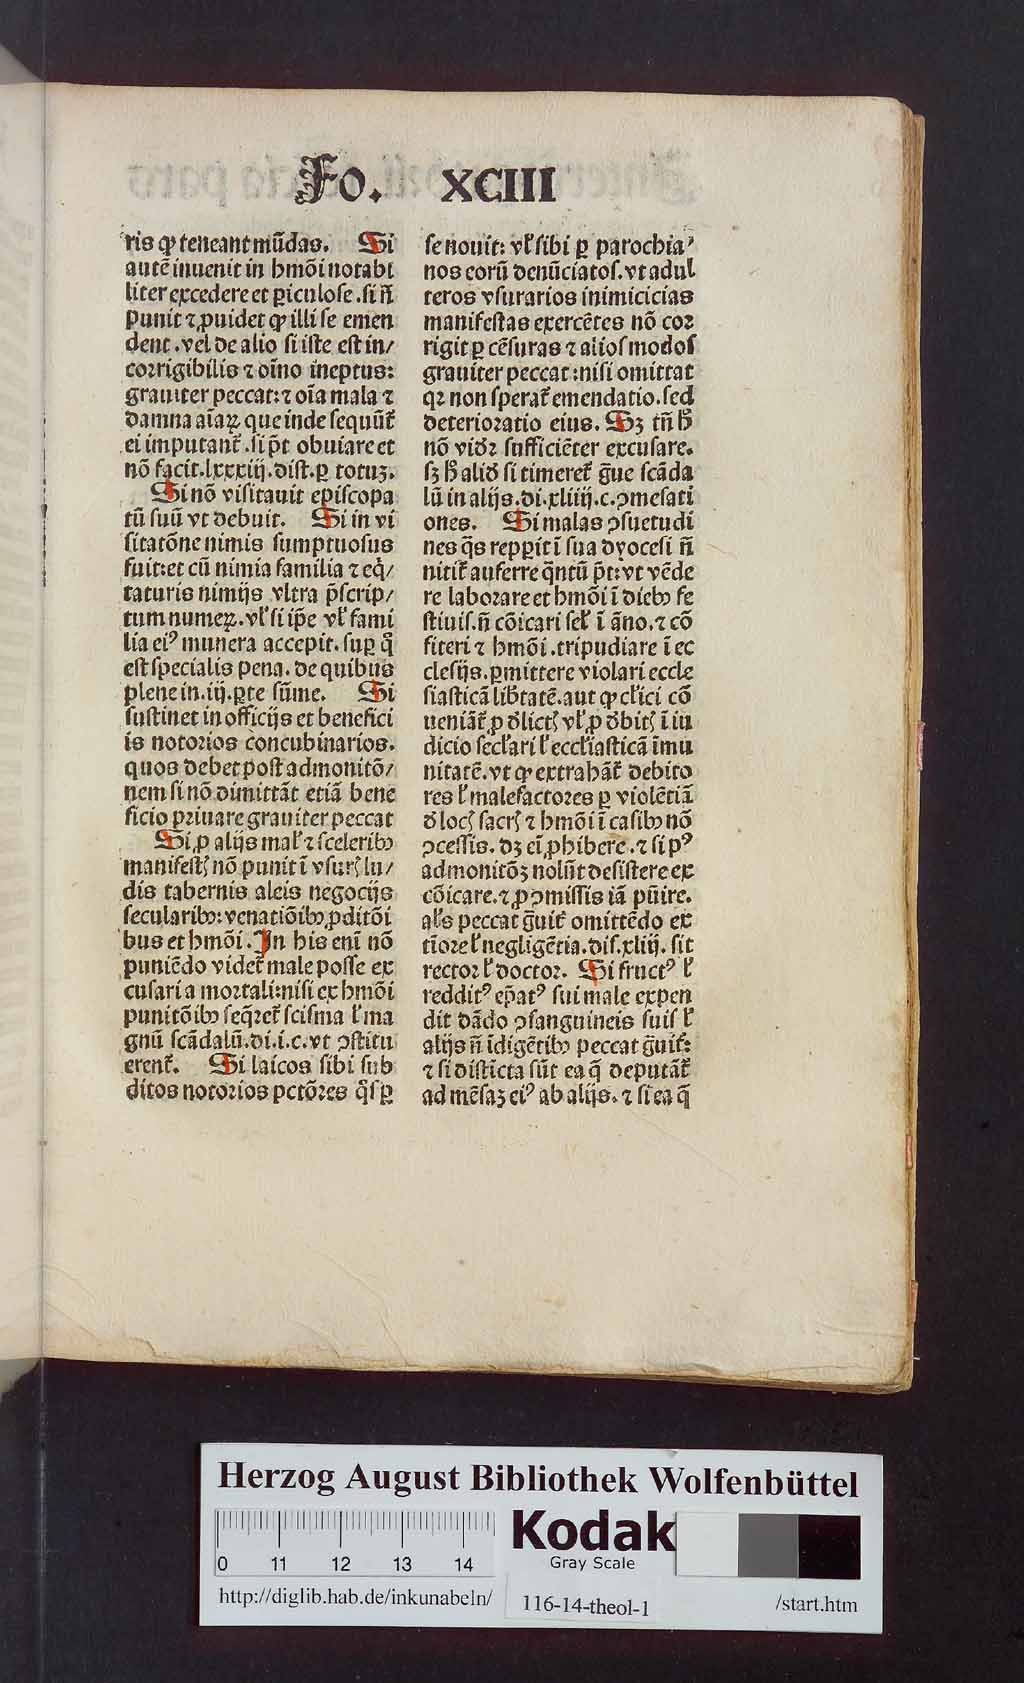 Fo. XCIII
ris ꝙ teneant mūdas. Si
autē inuenit in hmōi notabi
liter excedere et ꝑiculose. si n̄
punit ⁊ ꝓuidet ꝙ illi se emen
dent. vel de alio si iste est in/
corrigibilis ⁊ oīno ineptus:
grauiter peccat: ⁊ oīa mala ⁊
damna aīaꝝ que inde sequūt̄
ei imputant̄. si p̄t obuiare et
nō facit. lxxxiij. dist. ꝑ totuꝫ.
Si nō visitauit episcopa
tū suū vt debuit. Si in vi
sitatōne nimis sumptuosus
fuit: et cū nimia familia ⁊ eq̇/
taturis nimijs vltra p̄scrip/
tum numeꝝ. vl̓ si ip̄e vl̓ fami
lia eiꝰ munera accepit. suꝑ q̄
est specialis pena. de quibus
plene in. iij. ꝑte sūme. Si
sustinet in officijs et benefici
is notorios concubinarios.
quos debet post admonitō/
nem si nō dimittāt etiā bene
ficio priuare grauiter peccat
Si ꝓ alijs mal̓ ⁊ sceleribꝰ
manifestꝭ nō punit ī vsurꝭ lu/
dis tabernis aleis negocijs
secularibꝰ: venatiōibꝰ, ꝓditōi
bus et hmōi. In his enī nō
puniēdo videt̄ male posse ex
cusari a mortali: nisi ex hmōi
punitōibꝰ seq̄ret̄ scisma l̓ ma
gnū scādalū. di. i. c. vt ꝯstitu
erent̄. Si laicos sibi sub
ditos notorios pctōres q̇s ꝑ
se nouit: vl̓ sibi ꝑ parochiaꝰ
nos eorū denūciatos. vt adul
teros vsurarios inimicicias
manifestas exercētes nō cor
rigit ꝑ cēsuras ⁊ alios modos
grauiter peccat: nisi omittat
qꝛ non sperat̄ emendatio. sed
deterioratio eius. Sꝫ tn̄ h̄
nō vid̓ꝛ sufficiēter excusare.
sꝫ h̄ aliđ si timeret̄ ḡue scāda
lū in alijs. di. xliiij. c. ꝯmesati
ones. Si malas ꝯsuetudi
nes q̄s repperit ī sua dyocesi n̄
nitit̄ auferre q̄ntū p̄t: vt vēde
re laborare et hmōi ī diebꝰ fe
stiuis. n̄ cōicari sel̓ ī āno. ⁊ cō
fiteri ⁊ hmōi. tripudiare ī ec
clesijs. ꝑmittere violari eccle
siasticā lib̄tatē. aut ꝙ cl̓ici cō
ueniāt̄ ꝓ đlictꝭ vl̓ ꝓ đbitꝭ ī iu
dicio secl̓ari l̓ eccl̓iasticā īmu
nitatē. vt ꝙ extrahāt̄ debito
res l̓ malefactores ꝑ violētiā
đ locꝭ sacrꝭ ⁊ hmōi ī casibꝰ nō
ꝯcessis. dꝫ eī ꝓhibere. ⁊ si pꝰ
admonitōꝫ nolūt desistere ex
cōicare. ⁊ ꝓ ꝯmissis iā pūire.
al̓s peccat ḡuit̄ omittēdo ex
tīore l̓ negligētia. dis. xliij. sit
rector l̓ doctor. Si fructꝰ l̓
redditꝰ ep̄atꝰ sui male expen
dit dādo ꝯsanguineis suis l̓
alijs n̄ īdigētibꝰ peccat ḡuit̄:
⁊ si disticta sūt ea q̄ deputāt̄
ad mēsaꝫ eiꝰ ab alijs. ⁊ si ea q̄
Herzog August Bibliothek Wolfenbüttel
0 11 12 13 14
Kodak
Gray Scale
http://diglib.hab.de/inkunabeln/ 116-14-theol-1 /start.htm